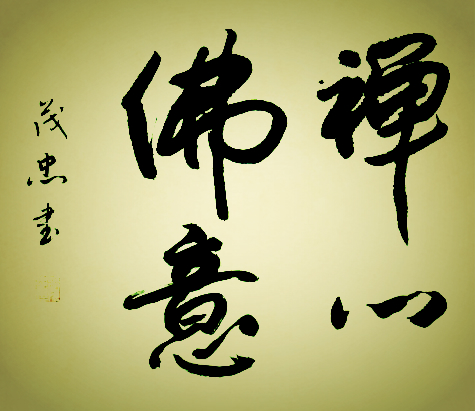 禅心
佛意
茂忠书